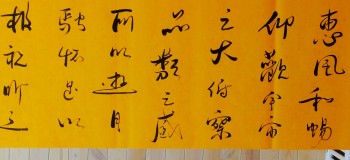 惠風和暢
仰觀宇宙
之大俯察
品類之盛
所以遊目
騁懷足以
極視聽之